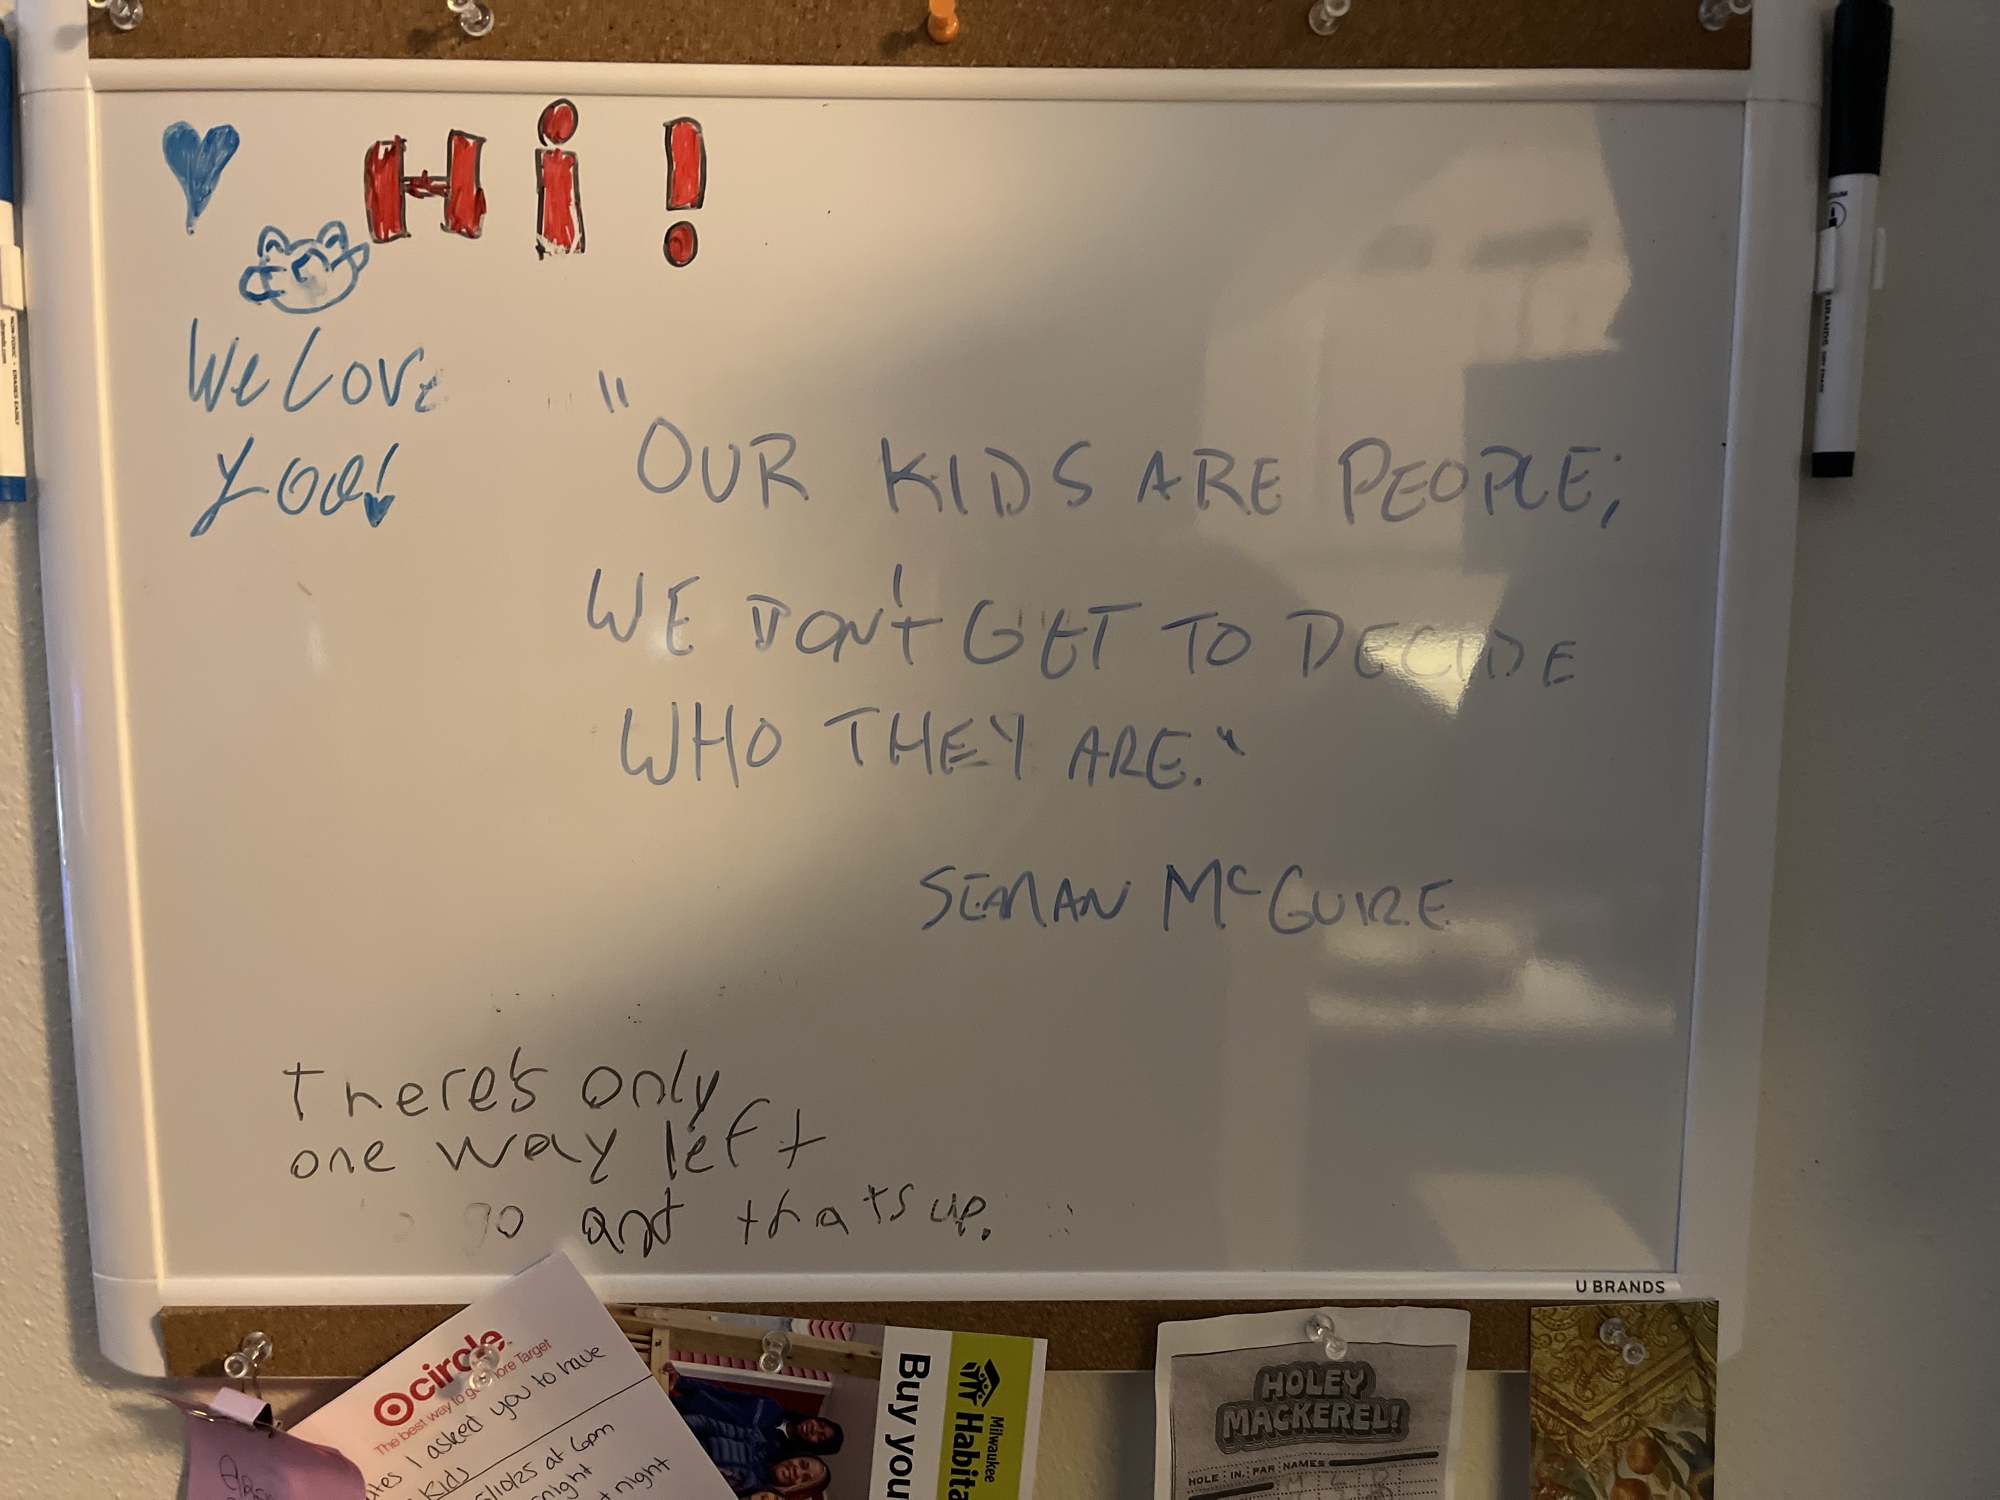 Hi!
We Love
you!
"OUR KIDS ARE PEOPLE;
WE DON'T GET TO DECIDE
WHO THEY ARE."
SEANAN McGUIRE
There's only
one way left
go and thats up.
U BRANDS
circle
The best way to get more Target
I asked you to have
Kids
at 6pm
night
night
Milwaukee
Habita
Buy you
HOLEY
MACKEREL!
HOLE IN. PAR NAMES